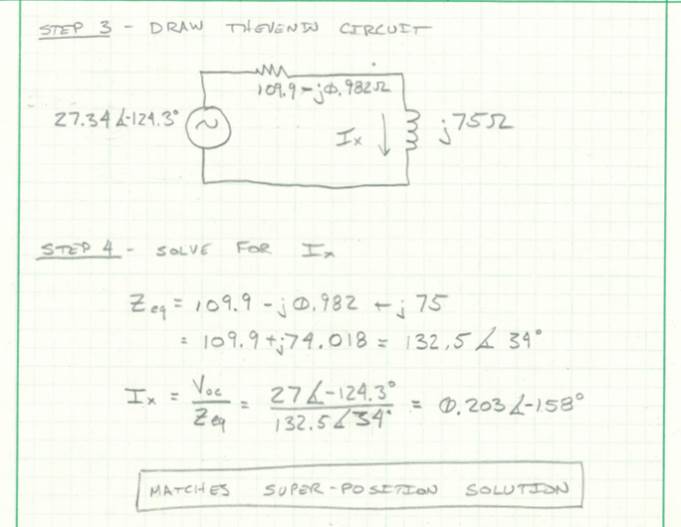 STEP 3 - DRAW THEVENIN CIRCUIT
109.9 - j0.982Ω
27.34∠-124.3°
Ix
j75Ω
STEP 4 - SOLVE FOR Ix
Zeq = 109.9 - j0.982 + j75
= 109.9 + j74.018 = 132.5∠34°
Ix = Voc/Zeq = 27∠-124.3°/132.5∠34° = 0.203∠-158°
MATCHES SUPER-POSITION SOLUTION